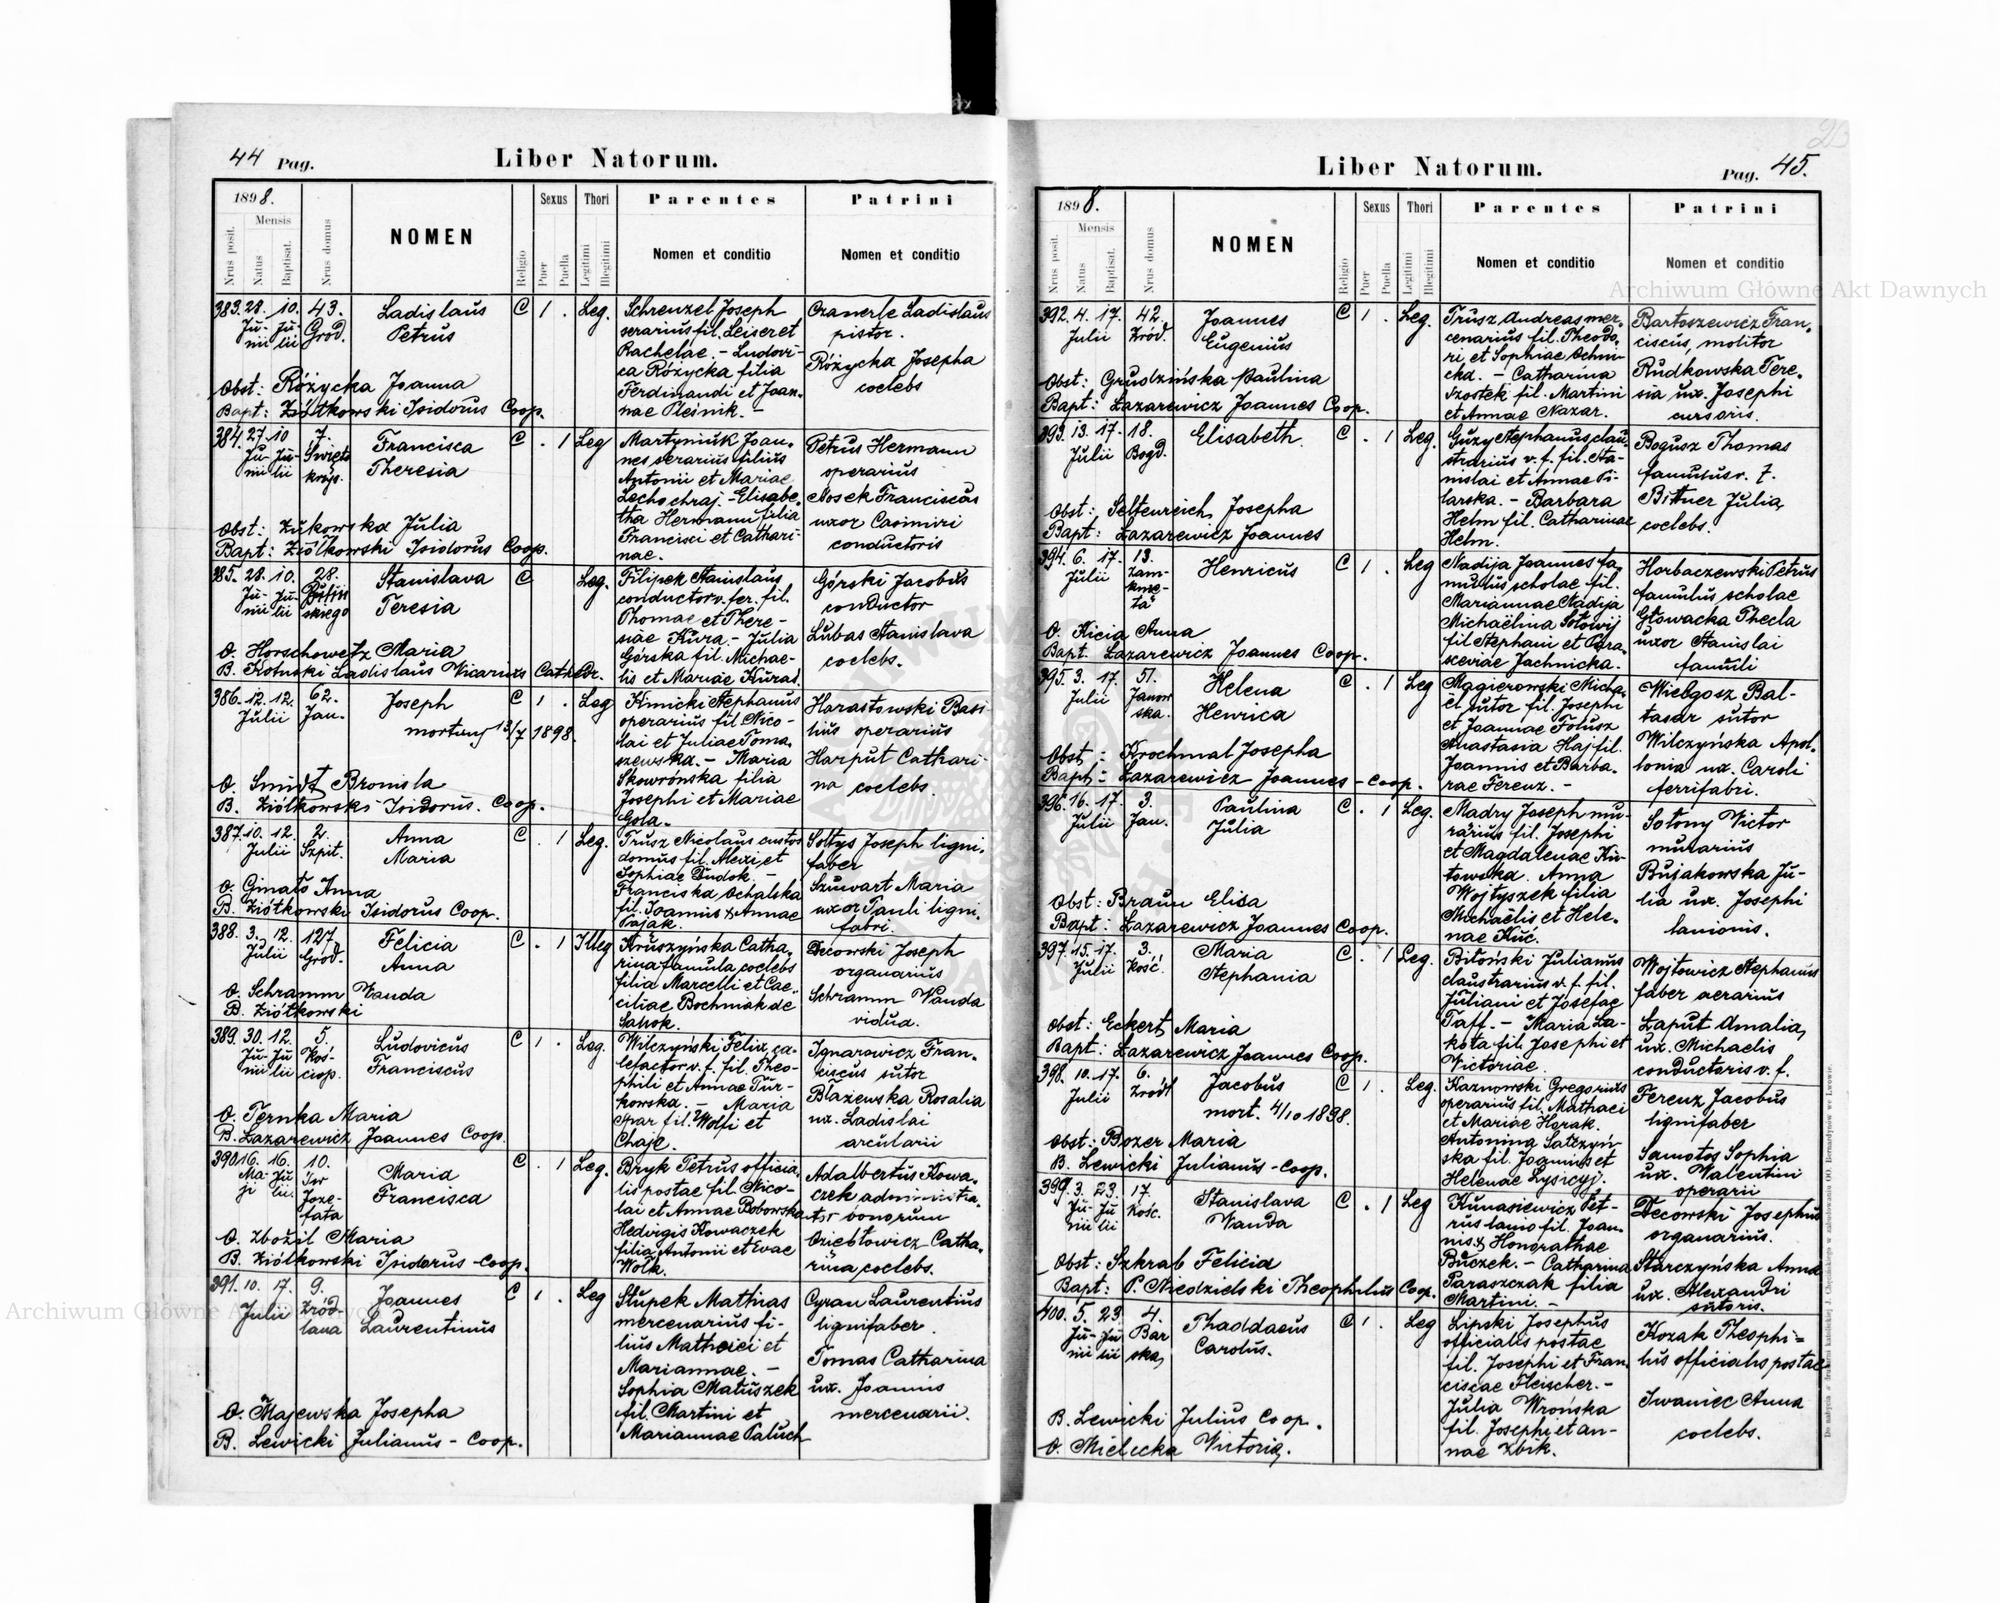 44 Pag.
Liber Natorum.
1898.
Mensis
Nrus posit.
Natus
Baptisat.
Nrus domus
NOMEN
Religio
Sexus
Puer
Puella
Thori
Legitimi
Illegitimi
Parentes
Nomen et conditio
Patrini
Nomen et conditio
383. 28. 10. 43. Ladislaus C 1 . Leg. Schrenzel Joseph
Ju- Ju- Grod. Petrus
nii lii
serarius fil. Leiser et
Rachelae. - Ludovi-
ca Różycka filia
Ferdinandi et Joan-
nae Pleśnik. -
Czanerle Ladislaus
pistor.
Różycka Josepha
coelebs
Obst: Różycka Joanna
Bapt: Ziółkowski Isidorus Coop.
384. 27. 10 7. Francisca C . 1 Leg
Ju- Ju- Święto Theresia
nii lii krzys.
Martyniuk Joan-
nes serarius filius
Antonii et Mariae
Lechochraj. - Elisabe-
tha Hermann filia
Francisci et Cathari-
nae.
Petrus Hermann
operarius
Nosek Franciscus
uxor Casimiri
conductoris
Obst: Żukowska Julia
Bapt: Ziółkowski Isidorus Coop.
385. 28. 10. 28. Stanislava C Leg.
Ju- Ju- Teresia
nii lii skiego
Filipek Stanislaus
conductor v. fer. fil.
Thomae et There-
siae Kura. - Julia
Górska fil. Michae-
lis et Mariae Kuras.
Górski Jacobus
conductor
Lubas Stanislava
coelebs.
O. Horschowetz Maria
B. Kotnski Ladislaus Vicarius Cathedr.
386. 12. 12. 62. Joseph C 1 . Leg
Julii Jan. mortuus 13/7 1898.
Kimicki Stephanus
operarius fil. Nico-
lai et Juliae Toma-
szewska. - Maria
Skowrońska filia
Josephi et Mariae
Gola.
Harastowski Basi
lius operarius
Harput Cathari-
na coelebs.
O. Smidt Bronisla
B. Ziółkowski Isidorus. Coop.
387. 10. 12. 2. Anna C . 1 Leg.
Julii Szpit. Maria
Trusz Nicolaus custos
domus fil. Alexi et
Sophiae Dudok. -
Franciska Ochalska
fil. Joannis & Annae
Pająk.
Sołtys Joseph ligni-
faber
Szuwart Maria
uxor Pauli ligni-
fabri.
O. Ginato Anna
B. Ziółkowski Isidorus Coop.
388. 3. 12. 127. Felicia C . 1 Illeg
Julii Grod. Anna
Kruszyńska Catha-
rina famula coelebs
filia Marcelli et Cae-
ciliae Bochniak de
Sanok.
Decowski Joseph
organarius
Schramm Wanda
vidua.
O. Schramm Wanda
B. Ziółkowski
389. 30. 12. 5. Ludovicus C 1 . Leg.
Ju- Ju Koś- Franciscus
nii lii ciop.
Wilczyński Felix ca-
lefactor v. f. fil. Theo-
phili et Annae Tur-
kowska. - Maria
Spar fil. Wolfi et
Chaje.
Ignarowicz Fran-
ciscus sutor
Błażewska Rosalia
ux. Ladislai
arcularii
O. Ternka Maria
B. Lazarewicz Joannes Coop.
390 16. 16. 10. Maria C . 1 Leg.
Ma- Ju św Francisca
ji lii. Joze-
fata
Bryk Petrus officia-
lis postae fil. Nico-
lai et Annae Bobowska
Hedvigis Kowaczek
filia Antonii et Evae
Wołk.
Adalbertus Kowa-
czek administra-
tor bonorum
Oziebłowicz Catha-
rina coelebs.
O. Zbożil Maria
B. Ziółkowski Isidorus - Coop.
391. 10. 17. 9. Joannes C 1 . Leg
Julii Źród- Laurentinus
lana
Słupek Mathias
mercenarius fi-
lius Mathaei et
Mariannae. -
Sophia Matuszek
fil. Martini et
Mariannae Paluch
Cyran Laurentius
lignifaber.
Tomas Catharina
ux. Joannis
mercenarii.
O. Majewska Josepha
B. Lewicki Julianus - Coop.
Liber Natorum.
Pag. 45.
1898.
Mensis
Nrus posit.
Natus
Baptisat.
Nrus domus
NOMEN
Religio
Sexus
Puer
Puella
Thori
Legitimi
Illegitimi
Parentes
Nomen et conditio
Patrini
Nomen et conditio
392. 4. 17. 42. Joannes C 1 . Leg.
Julii Źród. Eugenius
Trusz Andreas mer-
cenarius fil. Theodo-
ri et Sophiae Achni-
cka. - Catharina
Szostek fil. Martini
et Annae Nazar.
Bartoszewicz Fran-
ciscus, molitor
Rudkowska Tere-
sia ux. Josephi
cursoris.
Obst: Grudzińska Paulina
Bapt: Lazarewicz Joannes Coop.
393. 13. 17. 18. Elisabeth. C . 1 Leg.
Julii Bogd.
Guzy Stephanus clau-
strarius v. f. fil. Sta-
nislai et Annae Pi-
larska. - Barbara
Helm fil. Catharinae
Helm.
Bogusz Thomas
famulus v. f.
Bittner Julia
coelebs.
Obst: Seltenreich Josepha
Bapt: Lazarewicz Joannes
394. 6. 17. 13. Henricus C 1 . Leg
Julii Zam-
knię-
ta
Nadija Joannes fa-
mulus scholae fil.
Mariannae Nadija
Michaëlina Sołowij
fil Stephani et Para-
sceviae Jachnicka.
Horbaczewski Petrus
famulus scholae
Głowacka Thecla
uxor Stanislai
famuli
O. Kicia Anna
Bapt. Lazarewicz Joannes Coop.
395. 3. 17. 51. Helena C . 1 Leg
Julii Janow Henrica
ska.
Magierowski Micha-
ël sutor fil. Josephi
et Joannae Folusz
Anastasia Haj fil.
Joannis et Barba-
rae Ferenz. -
Wielgosz Bal-
tasar sutor
Wilczyńska Apol-
lonia ux. Caroli
ferrifabri.
Obst: Krochmal Josepha
Bapt: Lazarewicz Joannes - Coop.
396. 16. 17. 3. Paulina C . 1 Leg.
Julii Jan. Julia
Madry Joseph mu-
rarius fil. Josephi
et Magdalenae Ku-
towska. Anna
Wojtyszek filia
Michaëlis et Hele-
nae Kuć.
Sołony Victor
murarius
Bujakowska Ju-
lia ux. Josephi
lanionis.
Obst: Braun Elisa
Bapt: Lazarewicz Joannes Coop.
397. 15. 17. 3. Maria C . 1 Leg.
Julii Kość. Stephania
Bitoński Julianus
claustrarius v. f. fil.
Juliani et Josefae
Taff. - Maria Ła-
kota fil. Josephi et
Victoriae.
Wojtowicz Stephanus
faber aerarius
Łaput Amalia,
ux. Michaelis
conductoris v. f.
Obst: Eckert Maria
Bapt: Lazarewicz Joannes Coop.
398. 10. 17. 6. Jacobus C 1 . Leg.
Julii Źródł mort. 4/10 1898.
Kaznowski Gregorius
operarius fil. Mathaei
et Mariae Horak.
Antonina Satczyń
ska fil. Joannis et
Helenae Łysicyj.
Ferenz Jacobus
lignifaber
Samotos Sophia
ux. Valentini
operarii
Obst: Bozer Maria
B. Lewicki Julianus - Coop.
399. 3. 23. 17. Stanislava C . 1 Leg
Ju- Ju Kość. Wanda
nii lii
Kunasiewicz Pet-
rus lanio fil. Joan-
nis & Honorathae
Buczek. - Catharina
Paraszczak filia
Martini. -
Decowski Josephus
organarius.
Starczyńska Anna
ux. Alexandri
sutoris.
Obst: Szkrab Felicia
Bapt: P. Niedzielski Theophilus Coop.
400. 5. 23. 4. Thaddaeus C 1 . Leg
Ju- Ju Bar Carolus.
nii lii ska,
Lipski Josephus
officialis postae
fil. Josephi et Fran-
ciscae Fleischer. -
Julia Wrońska
fil. Josephi et An-
nae Zbik.
Kozak Theophi=
lus officialis postae
Iwaniec Anna
coelebs.
B. Lewicki Julius Coop.
O. Mielecka Victoria.
Archiwum Główne Akt Dawnych
Archiwum Główne Akt Dawnych